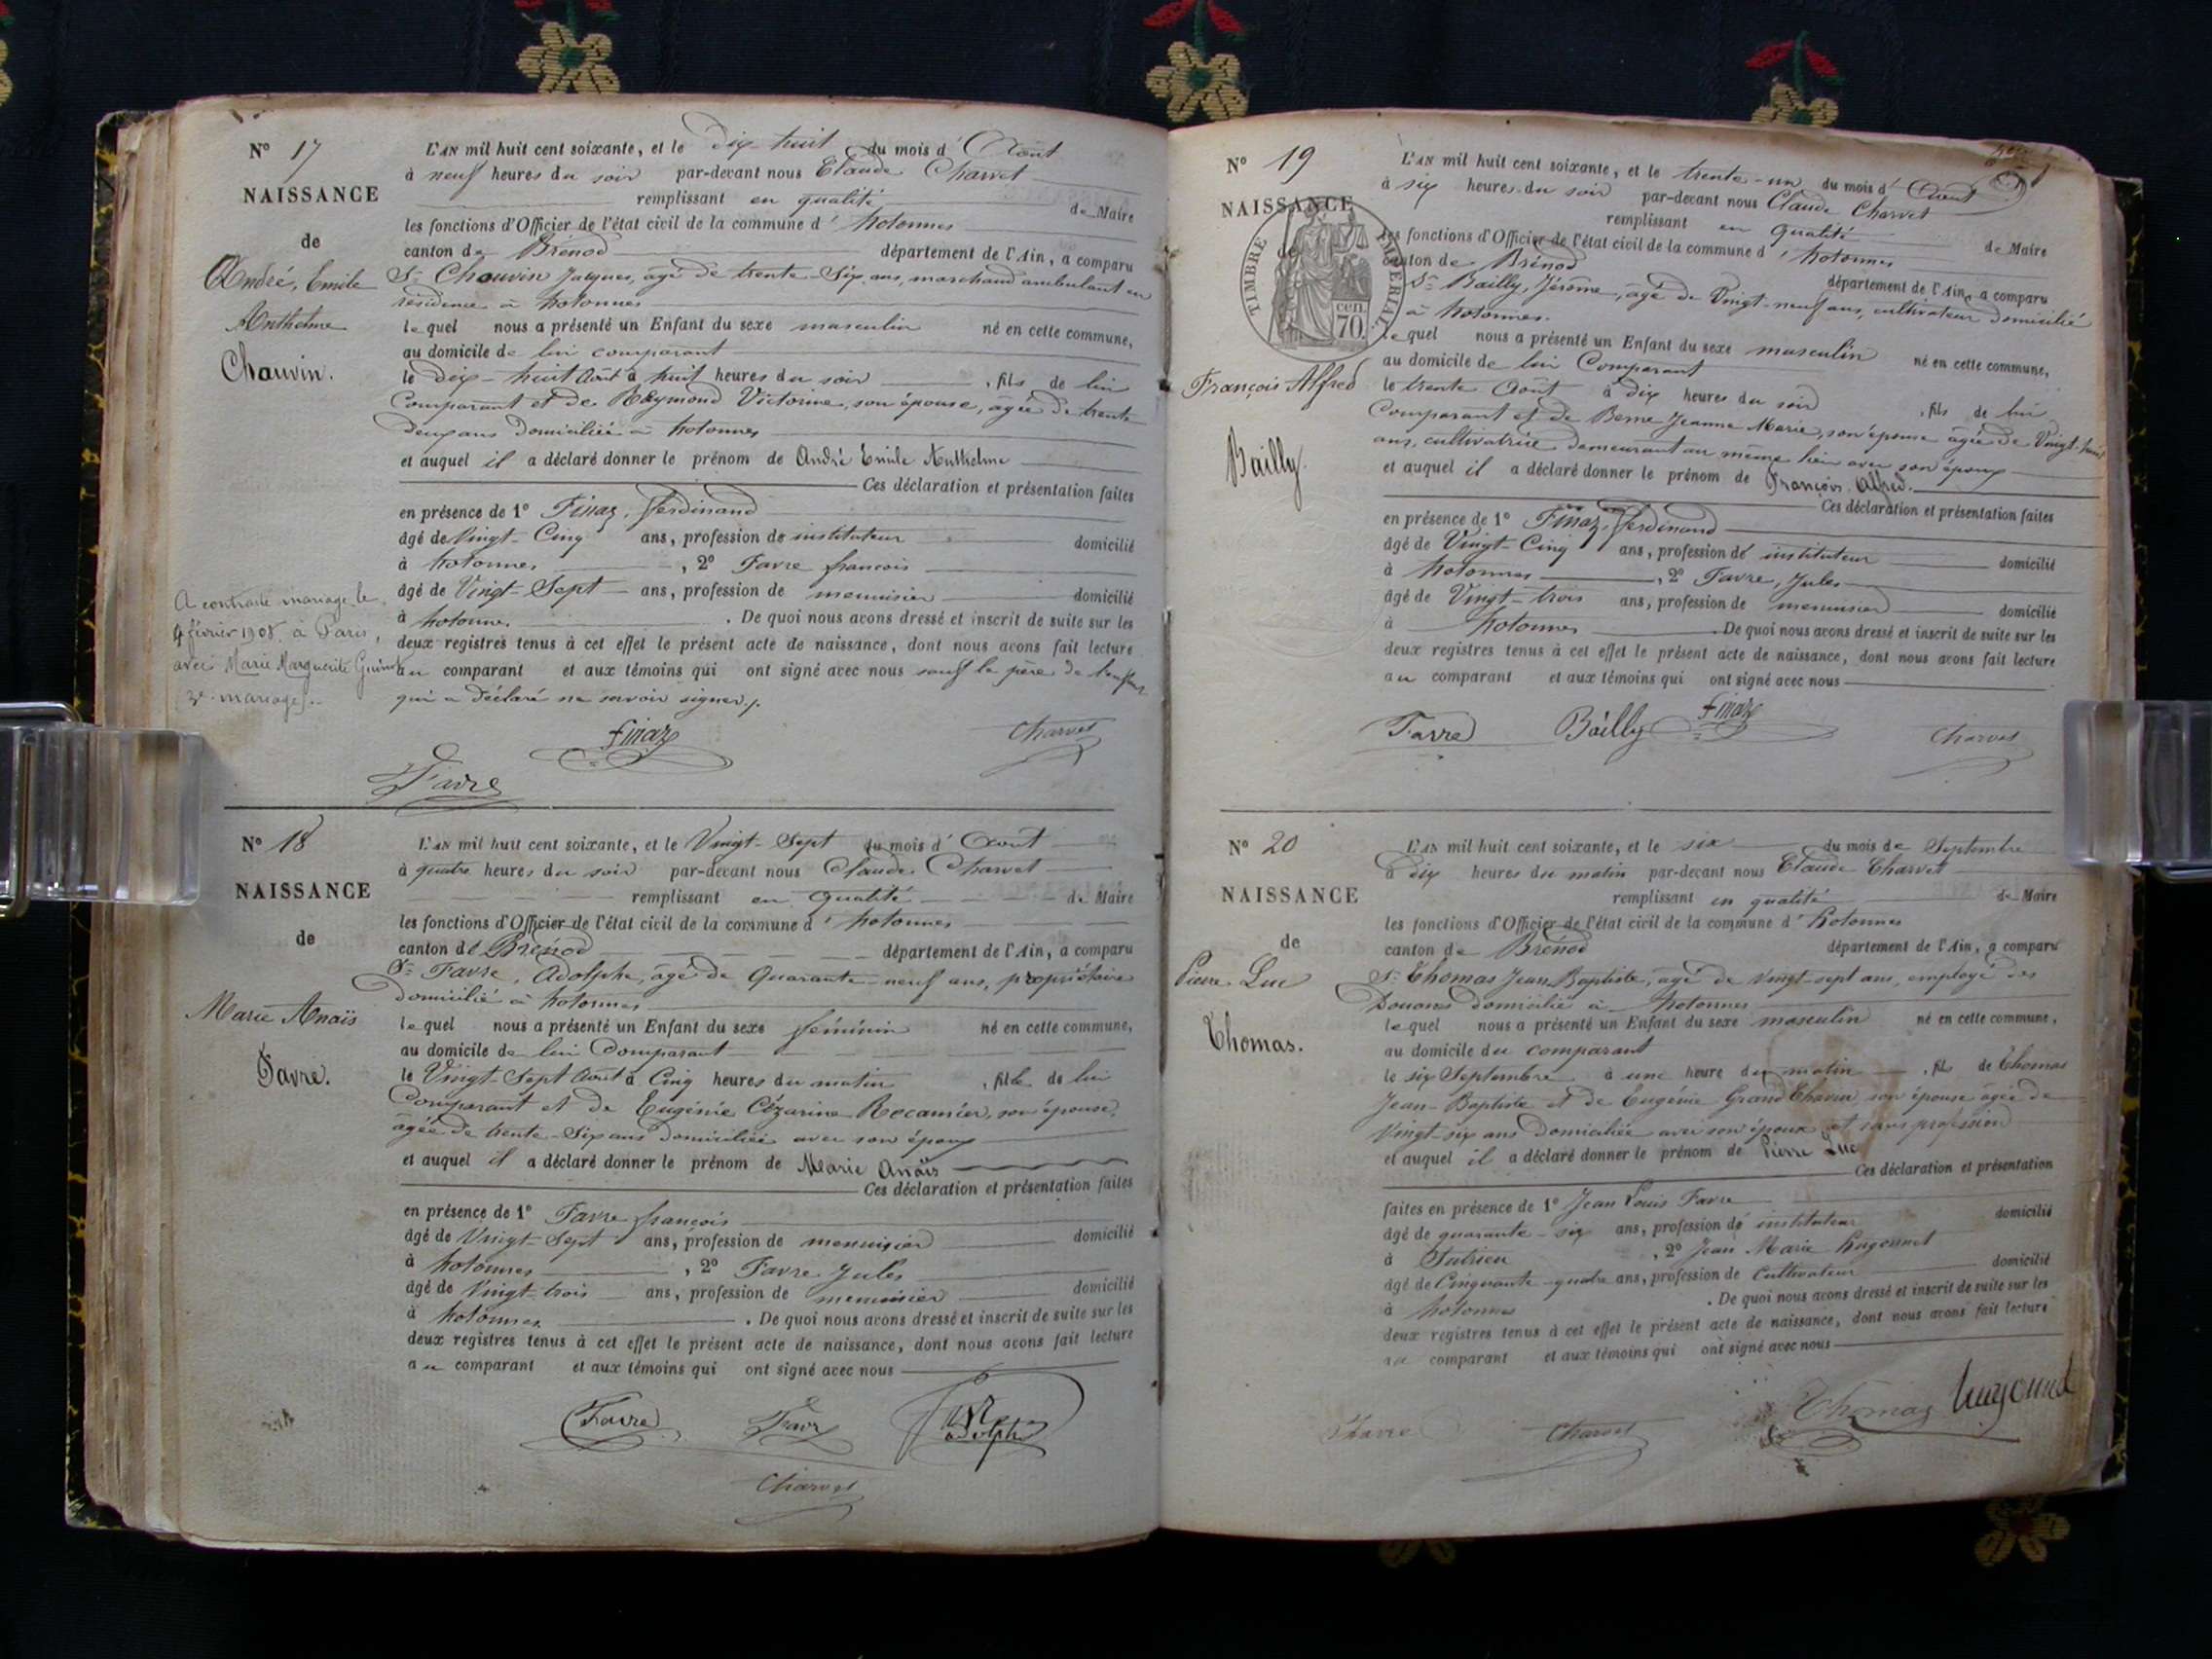 N° 17
NAISSANCE
de
André, Emile
Anthelme
Chauvin.
L'AN mil huit cent soixante, et le dix huit du mois d'Août
à neuf heures du soir par-devant nous Claude Charvet
remplissant en qualité de Maire
les fonctions d'Officier de l'état civil de la commune d'hotonnes
canton de Brénod département de l'Ain, a comparu
Sr Chauvin Jacques, agé de trente Six ans, marchand ambulant en
résidence à hotonnes
lequel nous a présenté un Enfant du sexe masculin né en cette commune,
au domicile de lui comparant
le dix-huit Août à huit heures du soir, fils de lui
Comparant et de Raymond Victorine, son épouse, agée de trente
deux ans domiciliée à hotonnes
et auquel il a déclaré donner le prénom de André Emile Anthelme
Ces déclaration et présentation faites
en présence de 1° Finaz, ferdinand
âgé de Vingt-Cinq ans, profession de instituteur domicilié
à hotonnes, 2° Favre françois
âgé de Vingt-Sept ans, profession de menuisier domicilié
à hotonnes. De quoi nous avons dressé et inscrit de suite sur les
deux registres tenus à cet effet le présent acte de naissance, dont nous avons fait lecture
au comparant et aux témoins qui ont signé avec nous sauf le père de l'enfant
qui a déclaré ne savoir signer.
A contracté mariage le
4 février 1908, à Paris,
avec Marie Marguerite
3e mariage.
Finaz
Charvet
Favre
N° 18
NAISSANCE
de
Marie Anaïs
Favre.
L'AN mil huit cent soixante, et le Vingt-Sept du mois d'Août
à quatre heures du soir par-devant nous Claude Charvet
remplissant en qualité de Maire
les fonctions d'Officier de l'état civil de la commune d'hotonnes
canton de Brénod département de l'Ain, a comparu
Sr Favre, Adolphe, âgé de Quarante-neuf ans, propriétaire
domicilié à hotonnes
lequel nous a présenté un Enfant du sexe féminin né en cette commune,
au domicile de lui Comparant
le Vingt-Sept Août à Cinq heures du matin, fille de lui
Comparant et de Eugénie Cézarine Rocamier, son épouse,
agée de trente-Six ans domiciliée avec son époux
et auquel il a déclaré donner le prénom de Marie Anaïs
Ces déclaration et présentation faites
en présence de 1° Favre françois
âgé de Vingt-Sept ans, profession de menuisier domicilié
à hotonnes, 2° Favre Jules
âgé de Vingt-trois ans, profession de menuisier domicilié
à hotonnes. De quoi nous avons dressé et inscrit de suite sur les
deux registres tenus à cet effet le présent acte de naissance, dont nous avons fait lecture
au comparant et aux témoins qui ont signé avec nous
Favre Favre adolphe
Charvet
N° 19
NAISSANCE
de
TIMBRE IMPERIAL
70 cen
François Alfred
Bailly.
L'AN mil huit cent soixante, et le trente-un du mois d'Août
à six heures du soir par-devant nous Claude Charvet
remplissant en qualité de Maire
les fonctions d'Officier de l'état civil de la commune d'hotonnes
canton de Brénod département de l'Ain, a comparu
Sr Bailly, Jérôme, âgé de Vingt-neuf ans, cultivateur domicilié
à hotonnes.
lequel nous a présenté un Enfant du sexe masculin né en cette commune,
au domicile de lui Comparant
le trente Août à dix heures du soir, fils de lui
Comparant et de Berne Jeanne Marie, son épouse agée de Vingt-huit
ans, cultivatrice demeurant au même lieu avec son époux
et auquel il a déclaré donner le prénom de François Alfred.
Ces déclaration et présentation faites
en présence de 1° Finaz, ferdinand
âgé de Vingt-Cinq ans, profession de instituteur domicilié
à hotonnes, 2° Favre, Jules
âgé de Vingt-trois ans, profession de menuisier domicilié
à hotonnes. De quoi nous avons dressé et inscrit de suite sur les
deux registres tenus à cet effet le présent acte de naissance, dont nous avons fait lecture
au comparant et aux témoins qui ont signé avec nous
Favre Bailly Finaz Charvet
N° 20
NAISSANCE
de
Pierre Luc
Thomas.
L'AN mil huit cent soixante, et le six du mois de Septembre
à dix heures du matin par-devant nous Claude Charvet
remplissant en qualité de Maire
les fonctions d'Officier de l'état civil de la commune d'hotonnes
canton de Brénod département de l'Ain, a comparu
Sr Thomas Jean Baptiste, agé de vingt-sept ans, employé des
Douanes domicilié à hotonnes
lequel nous a présenté un Enfant du sexe masculin né en cette commune,
au domicile du comparant
le six Septembre à une heure du matin, fils de Thomas
Jean-Baptiste et de Eugénie Grand Chavin son épouse âgée de
Vingt-six ans domiciliée avec son époux et sans profession
et auquel il a déclaré donner le prénom de Pierre Luc
Ces déclaration et présentation
faites en présence de 1° Jean Louis Favre
âgé de quarante-six ans, profession de instituteur domicilié
à Sutrieu, 2° Jean Marie hugonnet
âgé de Cinquante-quatre ans, profession de Cultivateur domicilié
à hotonnes. De quoi nous avons dressé et inscrit de suite sur les
deux registres tenus à cet effet le présent acte de naissance, dont nous avons fait lecture
au comparant et aux témoins qui ont signé avec nous
Favre Charvet Thomas hugonnet